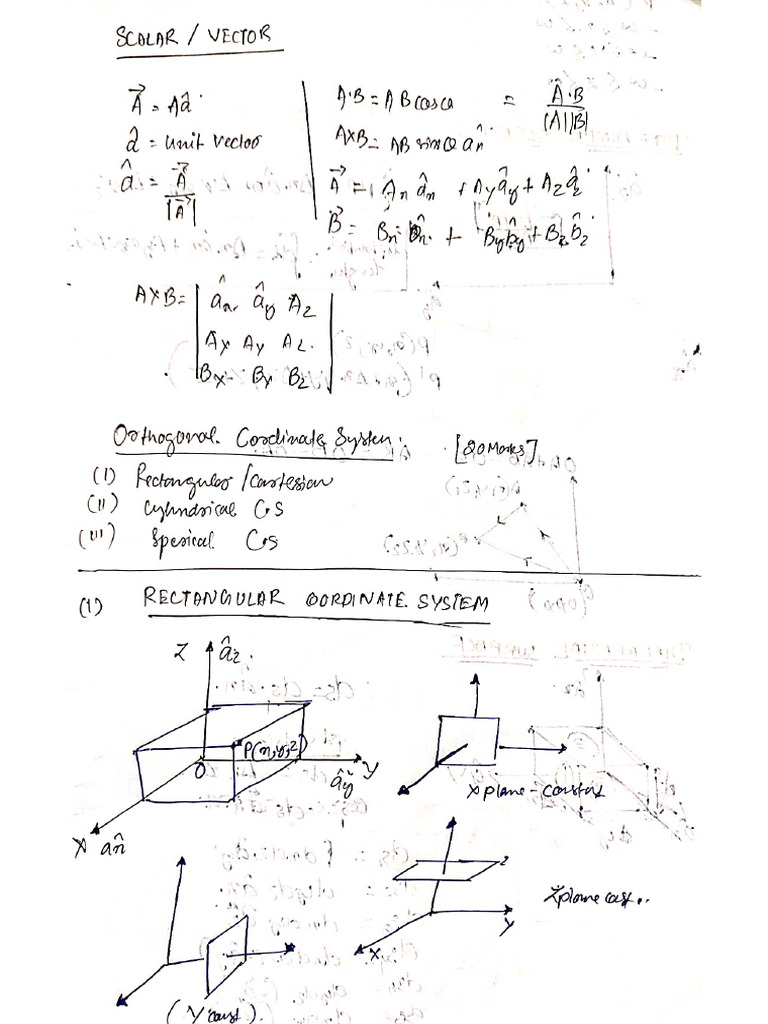 SCALAR / VECTOR
A⃗ = Aâ
â = unit vector
â = A⃗ / |A⃗|
A·B = AB cosα = A⃗·B / |A||B|
A×B = AB sinα ân
A⃗ = Ax âx + Ay ây + Az âz
B⃗ = Bx b̂x + By b̂y + Bz b̂z
A×B = | âx ây Az |
| Ax Ay Az |
| Bx By Bz |
Orthogonal Coordinate System. [20 Marks]
(I) Rectangular / Cartesian
(II) Cylindrical CS
(III) Sperical CS
(1) RECTANGULAR OORDINATE SYSTEM
Z âz
P(x,y,z)
O
Y
ây
X âx
X plane - constant
Z
Z plane cost..
Y
X
(Y const).